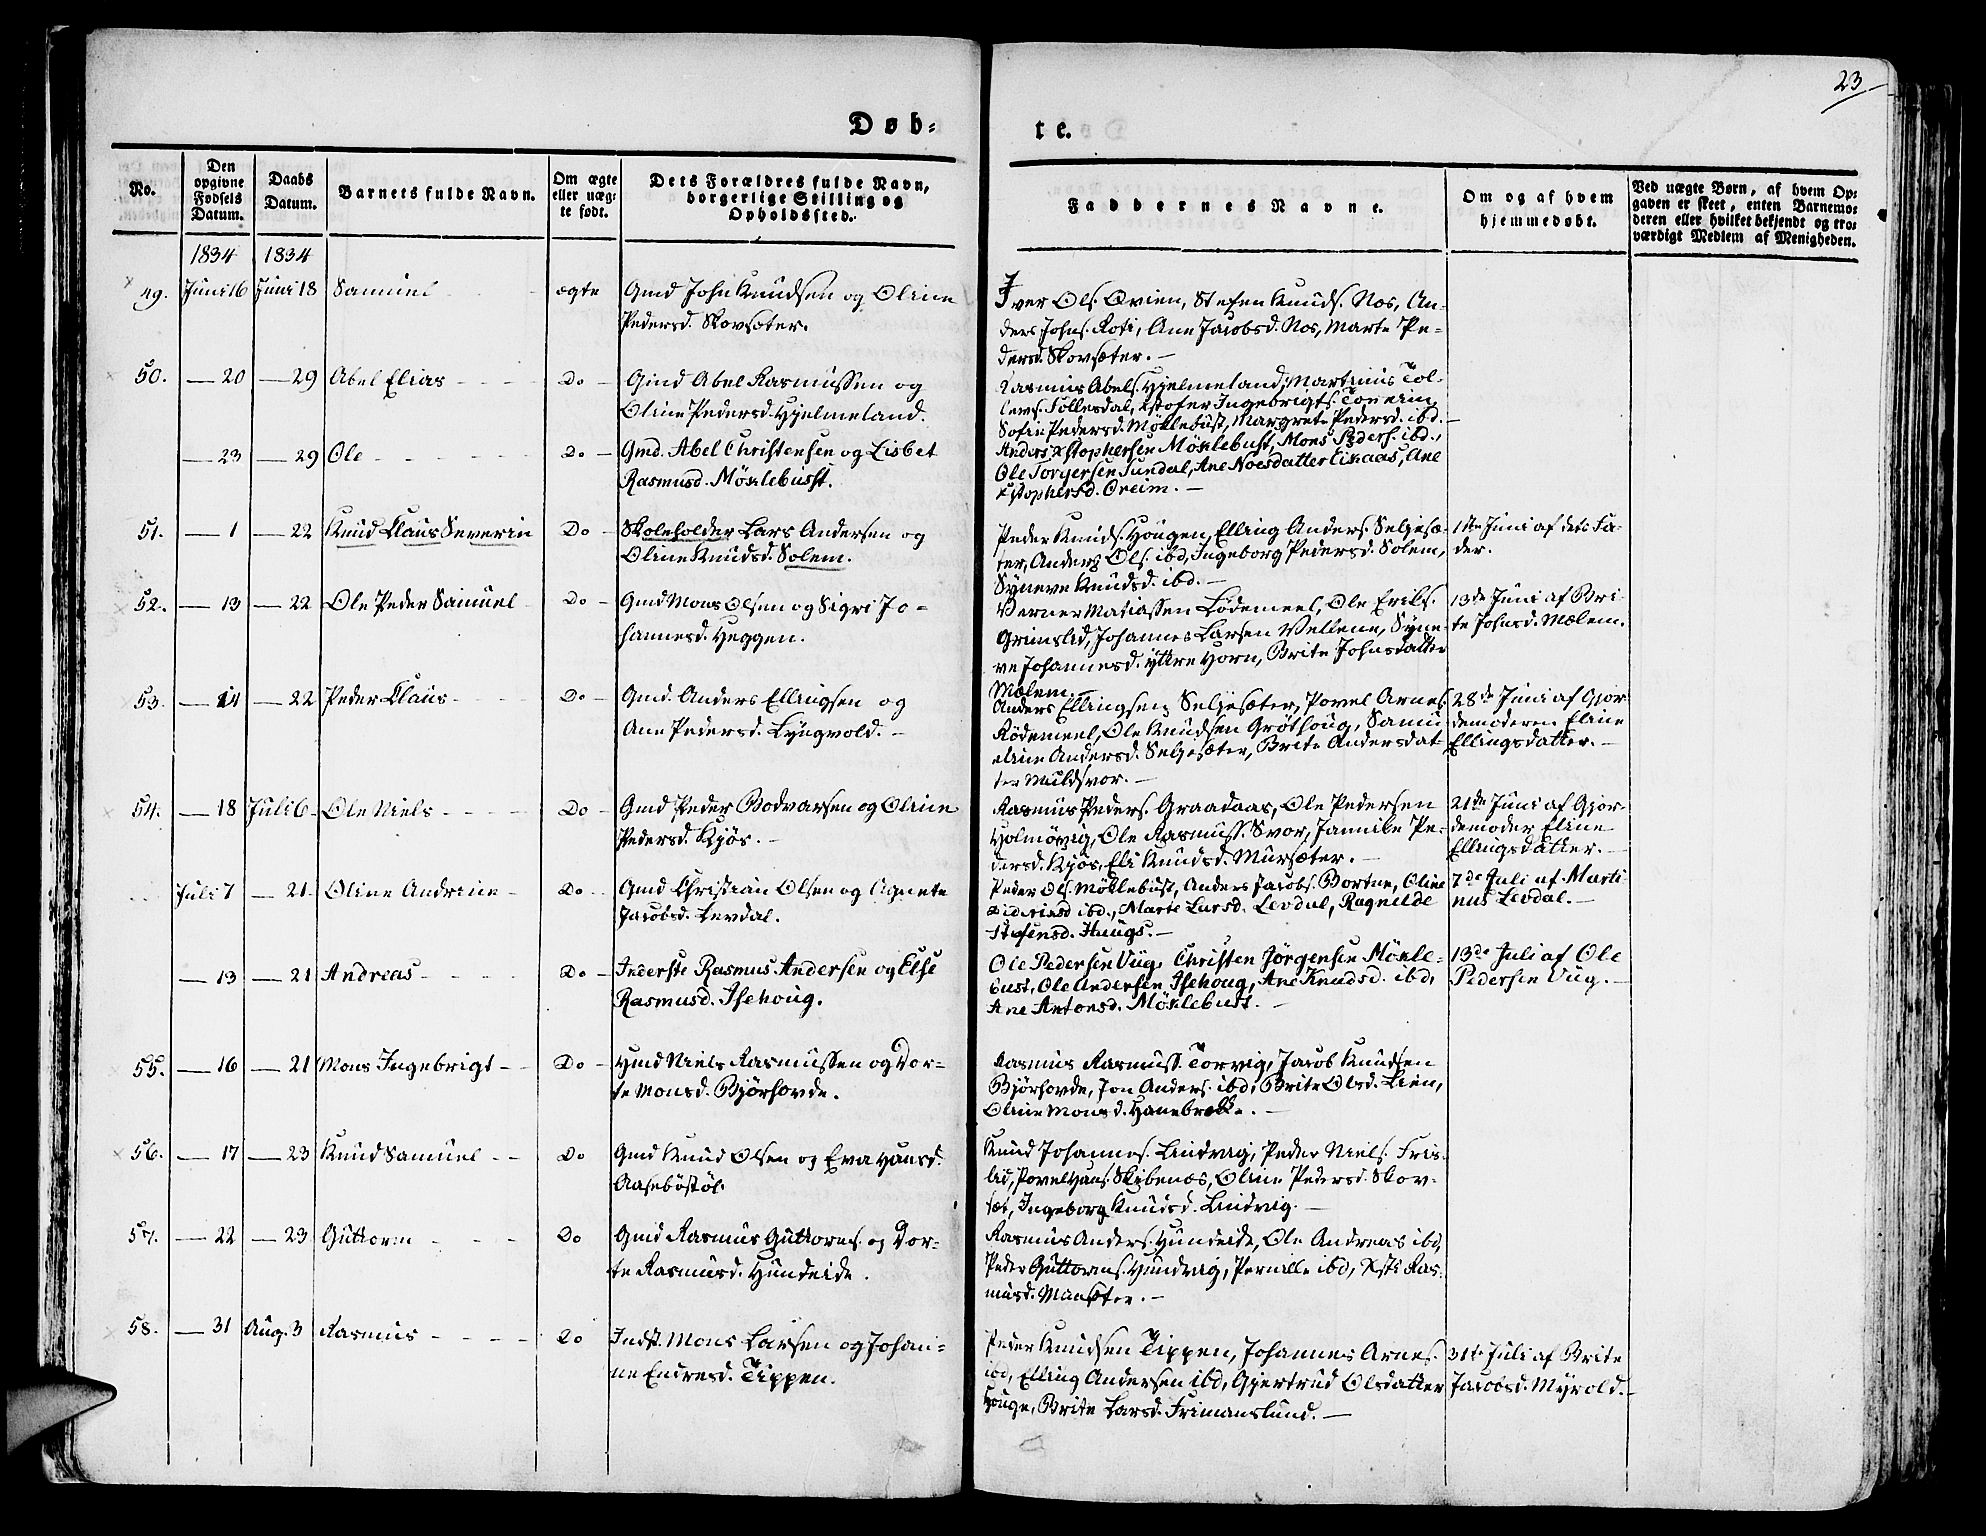 23
Døb-
te.
No.
Den opgivne Fødsels Datum.
Daabs Datum.
Barnets fulde Navn.
Om ægte eller uægte født.
Dets Forældres fulde Navn, borgerlige Stilling og Opholdssted.
Faddernes Navne.
Om og af hvem hjemmedøbt.
Ved uægte Børn, af hvem Opgaven er skeet, enten Barnemoderen eller hvilket bekjendt og troværdigt Medlem af Menigheden.
1834 1834
49. Juni 16 Juni 18 Samuel ægte Gmd John Knudsen og Oline
Pedersd. Skovsæter.
Iver Ols. Qvien, Stefen Knuds. Nos, An-
ders Johns. Roti, Ane Jacobsd. Nos, Marte Pe-
dersd. Skovsæter. —
50. — 20 — 29 Abel Elias Do Gmd Abel Rasmussen og
Oline Pedersd. Hjelmeland.
Rasmus Abels. Hjelmeland, Martinus Tol-
lews. Follesdal, Xstofer Ingebrigts. Tonheim
Sofie Pedersd. Møklebust, Margrete Pedersd. ibd. —
— 23 — 29 Ole Do Gmd. Abel Christensen og Lisbet
Rasmusd. Møklebust.
Anders Xstophersen Møklebust, Mons Peders. ibd.,
Ole Torgersen Sundal, Ane Noesdatter Eikaas, Ane
Xstophersd. Oreim. —
51. — 1 — 22 Knud Claus Severin Do Skoleholder Lars Andersen og
Oline Knudsd. Solem.
Peder Knuds. Hougen, Elling Anders. Seljesæ-
ter, Anders Ols. ibd, Ingeborg Pedersd. Solem,
Syneve Knudsd. ibd. —
1ste Juni af dets Fa-
der.
52. — 13 — 22 Ole Peder Samuel Do Gmd Mons Olsen og Sigri Jo-
hannesd. Heggen.
Verner Matiassen Lødemeel, Ole Eriks.
Grimslid, Johannes Larsen Vellene, Syne-
ve Johannesd. yttre Horn, Brite Johnsdatter
Mælem. —
13de Juni af Bri-
te Johnsd. Mælem.
53. — 14 — 22 Peder Claus Do Gmd. Anders Ellingsen og
Ane Pedersd. Lyngvold. —
Anders Ellingsen Seljesæter, Povel Arnes.
Rødemeel, Ole Knudsen Grøthoug, Samu-
eline Andersd. Seljesæter, Brite Andersdat-
ter Muldsvor. —
28de Juni af Gjor-
demoderen Eline
Ellingsdatter. —
54. — 18 Juli 6 Ole Niels Do Gmd Peder Bodvarsen og Oline
Pedersd. Kjøs. —
Rasmus Peders. Graadaas, Ole Pedersen
Holmøvig, Ole Rasmuss. Svor, Jannike Pe-
dersd. Kjøs, Eli Knudsd. Mursæter. —
21de Juni af Gjor-
demoder Eline
Ellingsdatter. —
Juli 7 — 21 Oline Andrine Do Gmd Christian Olsen og Agnete
Jacobsd. Levdal.
Peder Ols. Møklebust, Anders Jacobs. Bortne, Oline
Dideriksd ibd., Marte Larsd. Levdal, Ragnilde
Stefensd. Haugs. —
7de Juli af Marti-
nus Levdal. —
— 13 — 21 Andreas Do Inderste Rasmus Andersen og Else
Rasmusd. Isehoug.
Ole Pedersen Vug, Christen Jørgensen Møkle-
bust, Ole Andersen Isehoug, Ane Knudsd. ibd,
Ane Antonsd. Møklebust. —
13de Juli af Ole
Pedersen Vug. —
55. — 16 — 21 Mons Ingebrigt Do Hmd Niels Rasmussen og Dor-
te Monsd. Bjørhovde.
Rasmus Rasmuss. Torvig, Jacob Knudsen
Bjørhovde, Jon Anders. ibd, Brite Olsd. Lien,
Oline Monsd. Hanebrekke. —
56. — 17 — 23 Knud Samuel Do Gmd Knud Olsen og Eva Hansd.
Aasebøstøl.
Knud Johannes. Lindvig, Peder Niels. Fris-
lid, Povel Hans. Skibenæs, Oline Pedersd. Skov-
sæt, Ingeborg Knudsd. Lindvig. —
57. — 22 — 23 Guttorm Do Gmd Rasmus Guttorms. og Dor-
te Rasmusd. Hundeide.
Rasmus Anders. Hundeide, Ole Andreas ibd,
Peder Guttorms. Hundvig, Pernille ibd, Xsti Ras-
musd. Maasæter. —
58. — 31 Aug. 3 Rasmus Do Indst. Mons Larsen og Johan-
ne Endresd. Tippen.
Peder Knudsen Tippen, Johannes Arnes.
ibd, Elling Andersen ibd, Gjertrud Olsdatter
Houge, Brite Larsd. Frimanslund. —
31te Juli af Brite
Jacobsd. Myrold. —